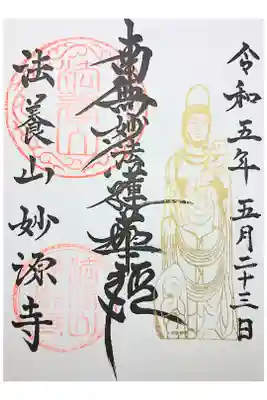 令和五年五月二十三日
南無妙法蓮華経
法養山妙源寺